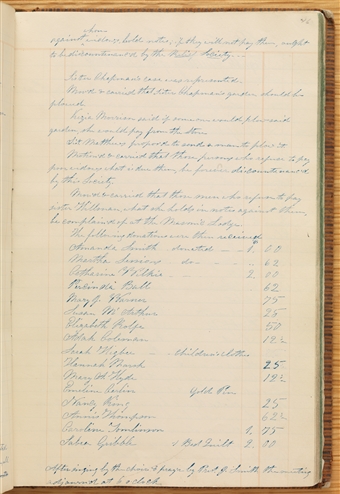 whom
against endowz hold notes, if they will not pay them, ought
to be discountenanced by the Relief Society.
Sister Chapman's case was represented.
Moved & carried that sister Chapman's garden should be
plowed.
Lizie Morrison said if someone would plow said
garden, she would pay from the Store.
Sist Matthews proposed to send a man to plow it.
Motioned & carried that those persons who refuse to pay
poor widows what is due them, be forever discountenanced
by this Society.
Moved & carried that those men who refuse to pay
sister Killenan, what she holds in notes against them,
be complained of at the Masonic Lodge.
The following donations were then received
Amanda Smith donated — 1. 00
Martha Sessions do — 62
Catharine Wilkie — 2. 00
Perlinda Ball 62
Mary J. Warner 75
Susan McArthur 25
Elizabeth Rolfe 50
Adah Coleman 12½
Sarah Higbee — Children's clothes
Hannah Marsh 25
Mary M Hyde 12½
Emiline Gold Pen
Nancy King 25
Annis Thompson 62½
Tomlinson 1. 75
Gribble & Bed Quilt 2. 00
After singing by the choir & prayer by Smith, the meeting
adjourned at 6 o'clock.